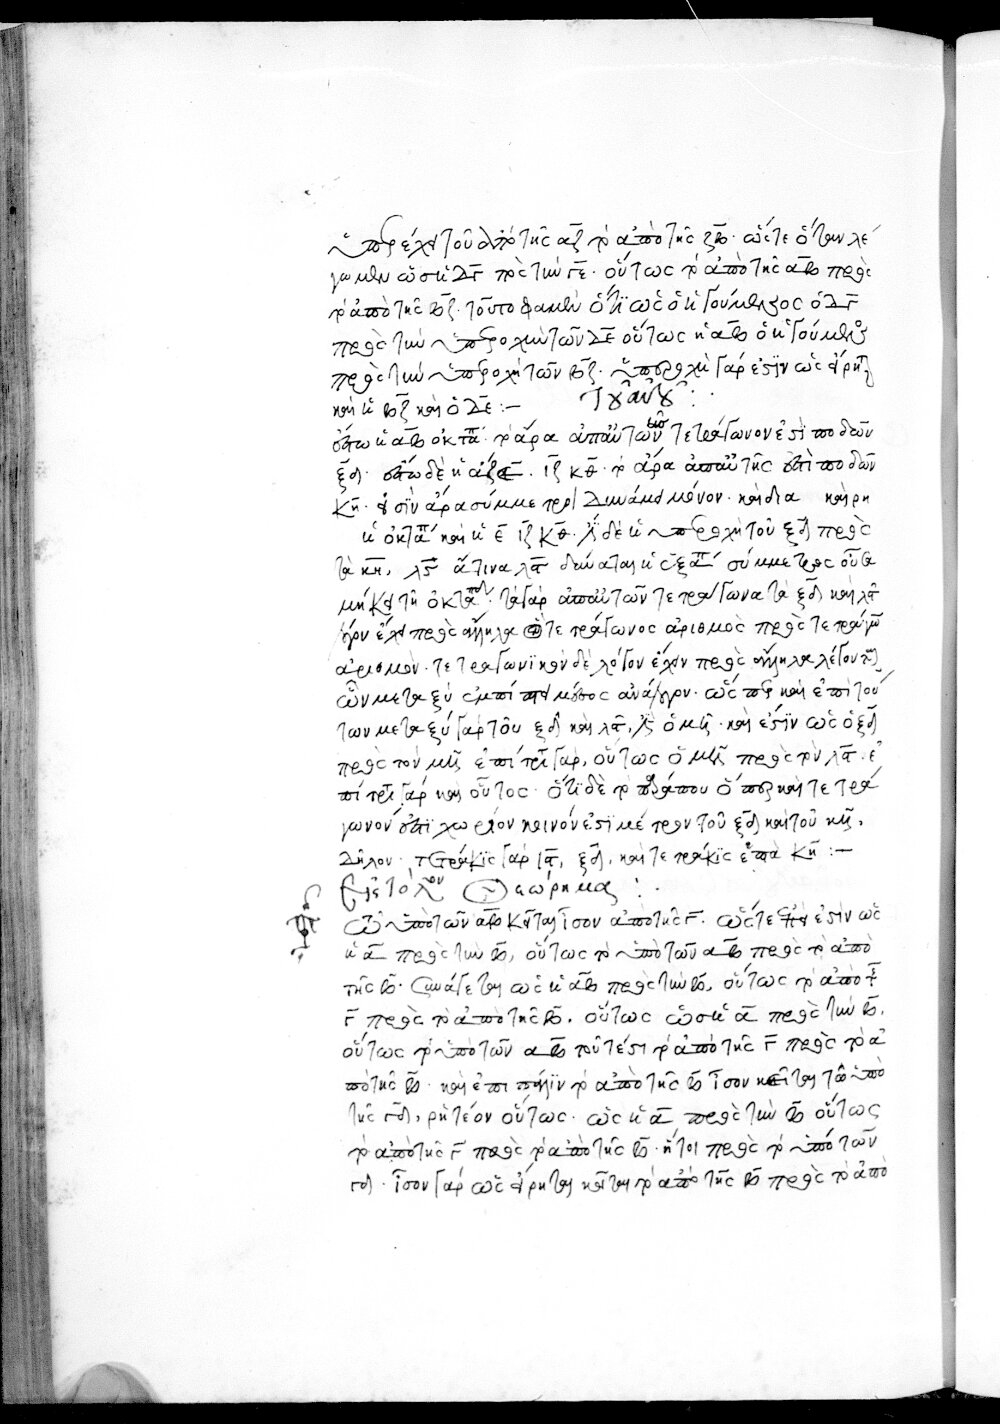 ὑπερέχει τοῦ ἀπὸ τῆς αζ τὸ ἀπὸ τῆς ζβ· ὥστε ὅταν λέ
γωμεν ὡς ἡ ΔΓ πρὸς τὴν ΓΕ· οὕτως τὸ ἀπὸ τῆς αβ πρὸς
τὸ ἀπὸ τῆς βζ· τοῦτο φαμὲν ὅτι ὡς ὁ ἡγούμενος ὁ ΔΓ
πρὸς τὴν ὑπεροχὴν τῶν ΔΕ οὕτως ἡ αβ ὁ ἡγούμενος
πρὸς τὴν ὑπεροχὴ τῶν βζ· ὑπεροχὴ γάρ ἐστιν ὡς εἴρηται
καὶ ἡ βζ καὶ ὁ ΔΕ :— τοῦ αὐτοῦ :·
ἔστω ἡ αβ ὀκτα· τὸ ἄρα ἀπ' αὐτῶν τετράγωνον ἐστὶ ποδῶν
ξδ· ἔστω δὲ ἡ αζ ε ιζ κθ· τὸ ἄρα ἀπ' αὐτῆς ἐστὶ ποδῶν
κη· εἰσὶν ἄρα σύμμετροι δυνάμει μόνον· καὶ δια καὶ ρη
ἡ ὀκτα καὶ ἡ ε ιζ κθ· ἡ δὲ ὑπεροχὴ τοῦ ξδ πρὸς
τὰ κη, λς ἅτινα λς δύναται ἡ ἑξαπ σύμμετρος οὖσα
μήκει τῇ ὀκταπ· τὰ γὰρ ἀπ' αὐτῶν τετράγωνα τὰ ξδ καὶ λς
λόγον ἔχει πρὸς ἄλληλα ὃν τετράγωνος ἀριθμὸς πρὸς τετράγω
ἀριθμὸν· τετραγωνικὸν δὲ λόγον ἔχειν πρὸς ἄλληλα λέγονται
ὧν μεταξὺ ἐμπίπτει μέσος ἀνάλογον· ὥσπερ καὶ ἐπὶ τού
των μεταξὺ γὰρ τοῦ ξδ καὶ λς, ὁ μη· καὶ ἔστιν ὡς ὁ ξδ
πρὸς τὸν μη ἐπίτρι γάρ, οὕτως ὁ μη πρὸς τὸν λς· ἐ
πίτρι γὰρ καὶ οὗτος· ὅτι δὲ τὸ ὅπερ καὶ τετρά
γωνόν ἐστι χωρίον κοινόν ἐστι μέτρον τοῦ ξδ καὶ τοῦ κη,
δῆλον· τετράκις γὰρ ις, ξδ, καὶ τετράκις ἑπτὰ κη :—
Εἰς τὸ λον Θεώρημα :·
Ὧ ὑπὸ τῶν αβ κεῖται ἴσον ἀπὸ τῆς γ· ὥστε ἐπεί ἐστιν ὡς
ἡ α πρὸς τὴν β, οὕτως τὸ ὑπὸ τῶν αβ πρὸς τὸ ἀπὸ
τῆς β· συνάγεται ὡς ἡ αβ πρὸς τὴν β, οὕτως τὸ ἀπὸ τ
γ πρὸς τὸ ἀπὸ τῆς β, οὕτως ὡς ἡ α πρὸς τὴν β,
οὕτως τὸ ὑπὸ τῶν αβ τουτέστι τὸ ἀπὸ τῆς γ πρὸς τὸ ἀ
πὸ τῆς β· καὶ ἐπὶ πάλιν τὸ ἀπὸ τῆς β ἴσον κεῖται τῷ ὑπὸ
τῆς γδ, ῥητέον οὕτως· ὡς ἡ α πρὸς τὴν β οὕτως
τὸ ἀπὸ τῆς γ πρὸς τὸ ἀπὸ τῆς β· ἤτοι πρὸς τὸ ὑπὸ τῶν
γδ· ἴσον γὰρ ὡς εἴρηται κεῖται τὸ ἀπὸ τῆς β πρὸς τὸ ἀπὸ